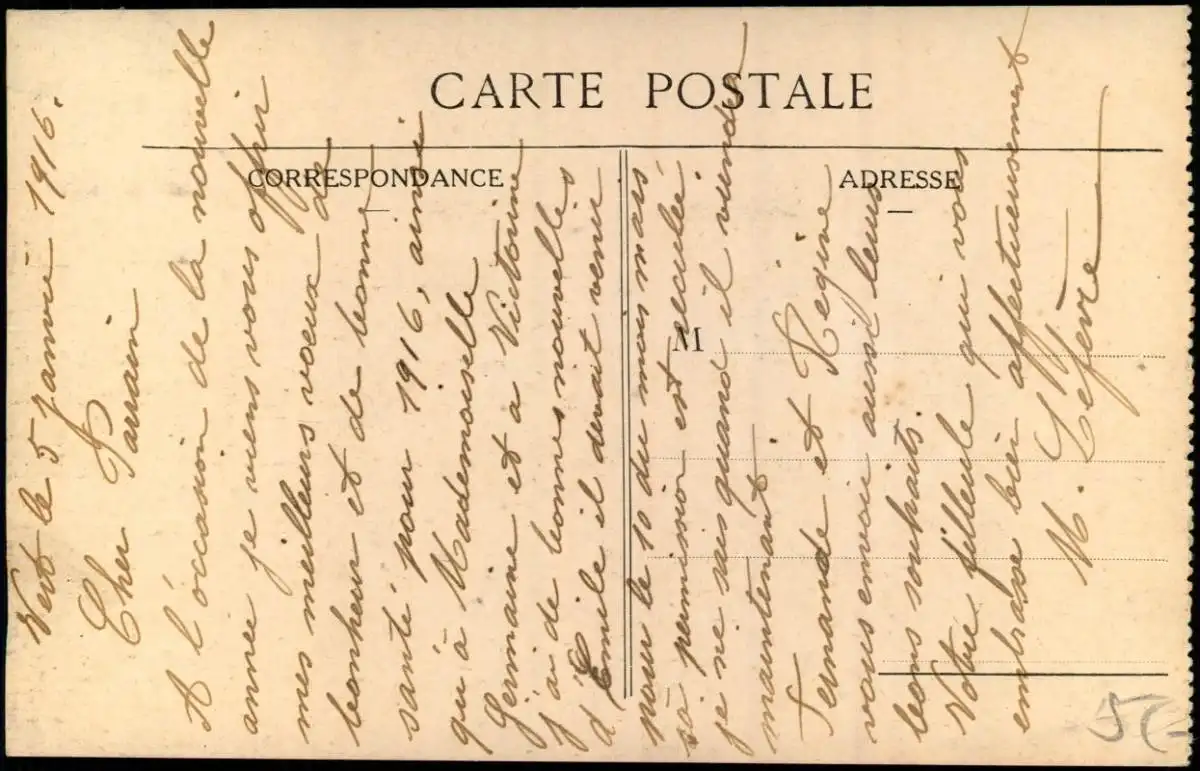 CARTE POSTALE
CORRESPONDANCE
ADRESSE
M
Vert le 5 Janvier 1916.
Cher Parrain
A l'occasion de la nouvelle
année je viens vous offrir
mes meilleurs voeux de
bonheur et de bonne
santé pour 1916, ainsi
qu'à Mademoiselle
Germaine et a Victorine
J'ai de bonnes nouvelles
d'Emile il devait venir
pour le 10 du mois mais
sa permission est reculée.
je ne sais quand il viendra
maintenant.
Fernande et Regine
vous envoie aussi leurs
bons souhaits.
Votre filleule qui vous
embrasse bien affectueusement
M. Lefèvre